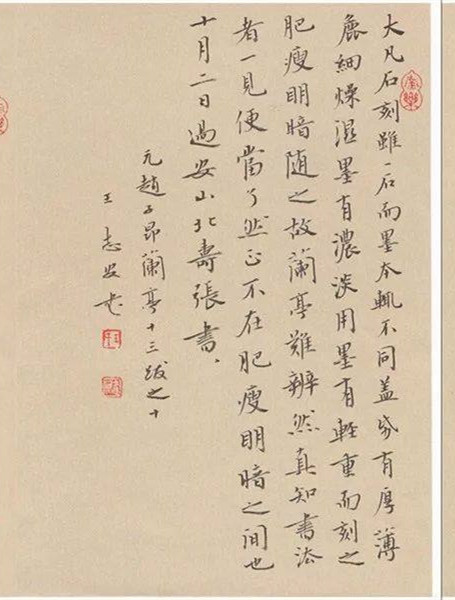 大凡石刻雖一石而墨本輒不同盖帋有厚薄
麁細燥濕墨有濃淡用墨有輕重而刻之
肥瘦明暗隨之故蘭亭難辨然真知書法
者一見便當了然正不在肥瘦明暗之間也
十月二日過安山北壽張書、
元趙子昂蘭亭十三跋之十
王志安書